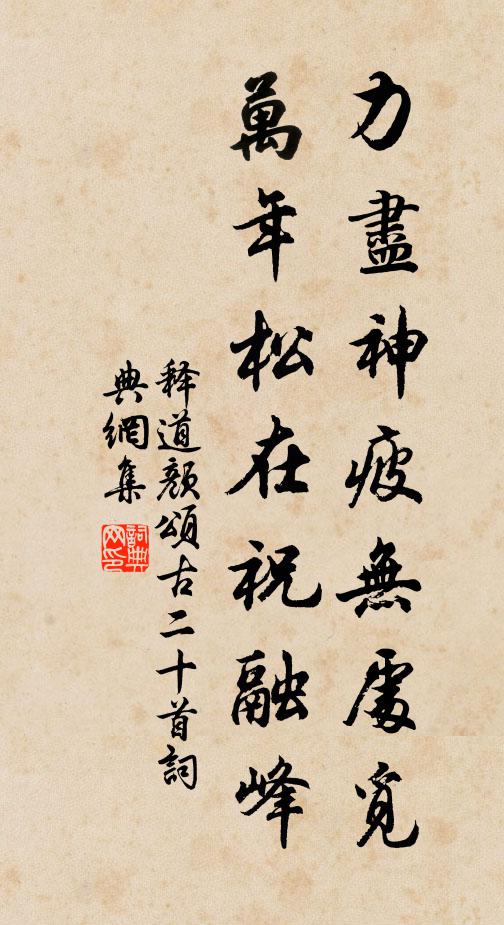 力盡神疲無處覓
萬年松在祝融峰
释道颜頌古二十首詞
典網集
詞典
网印